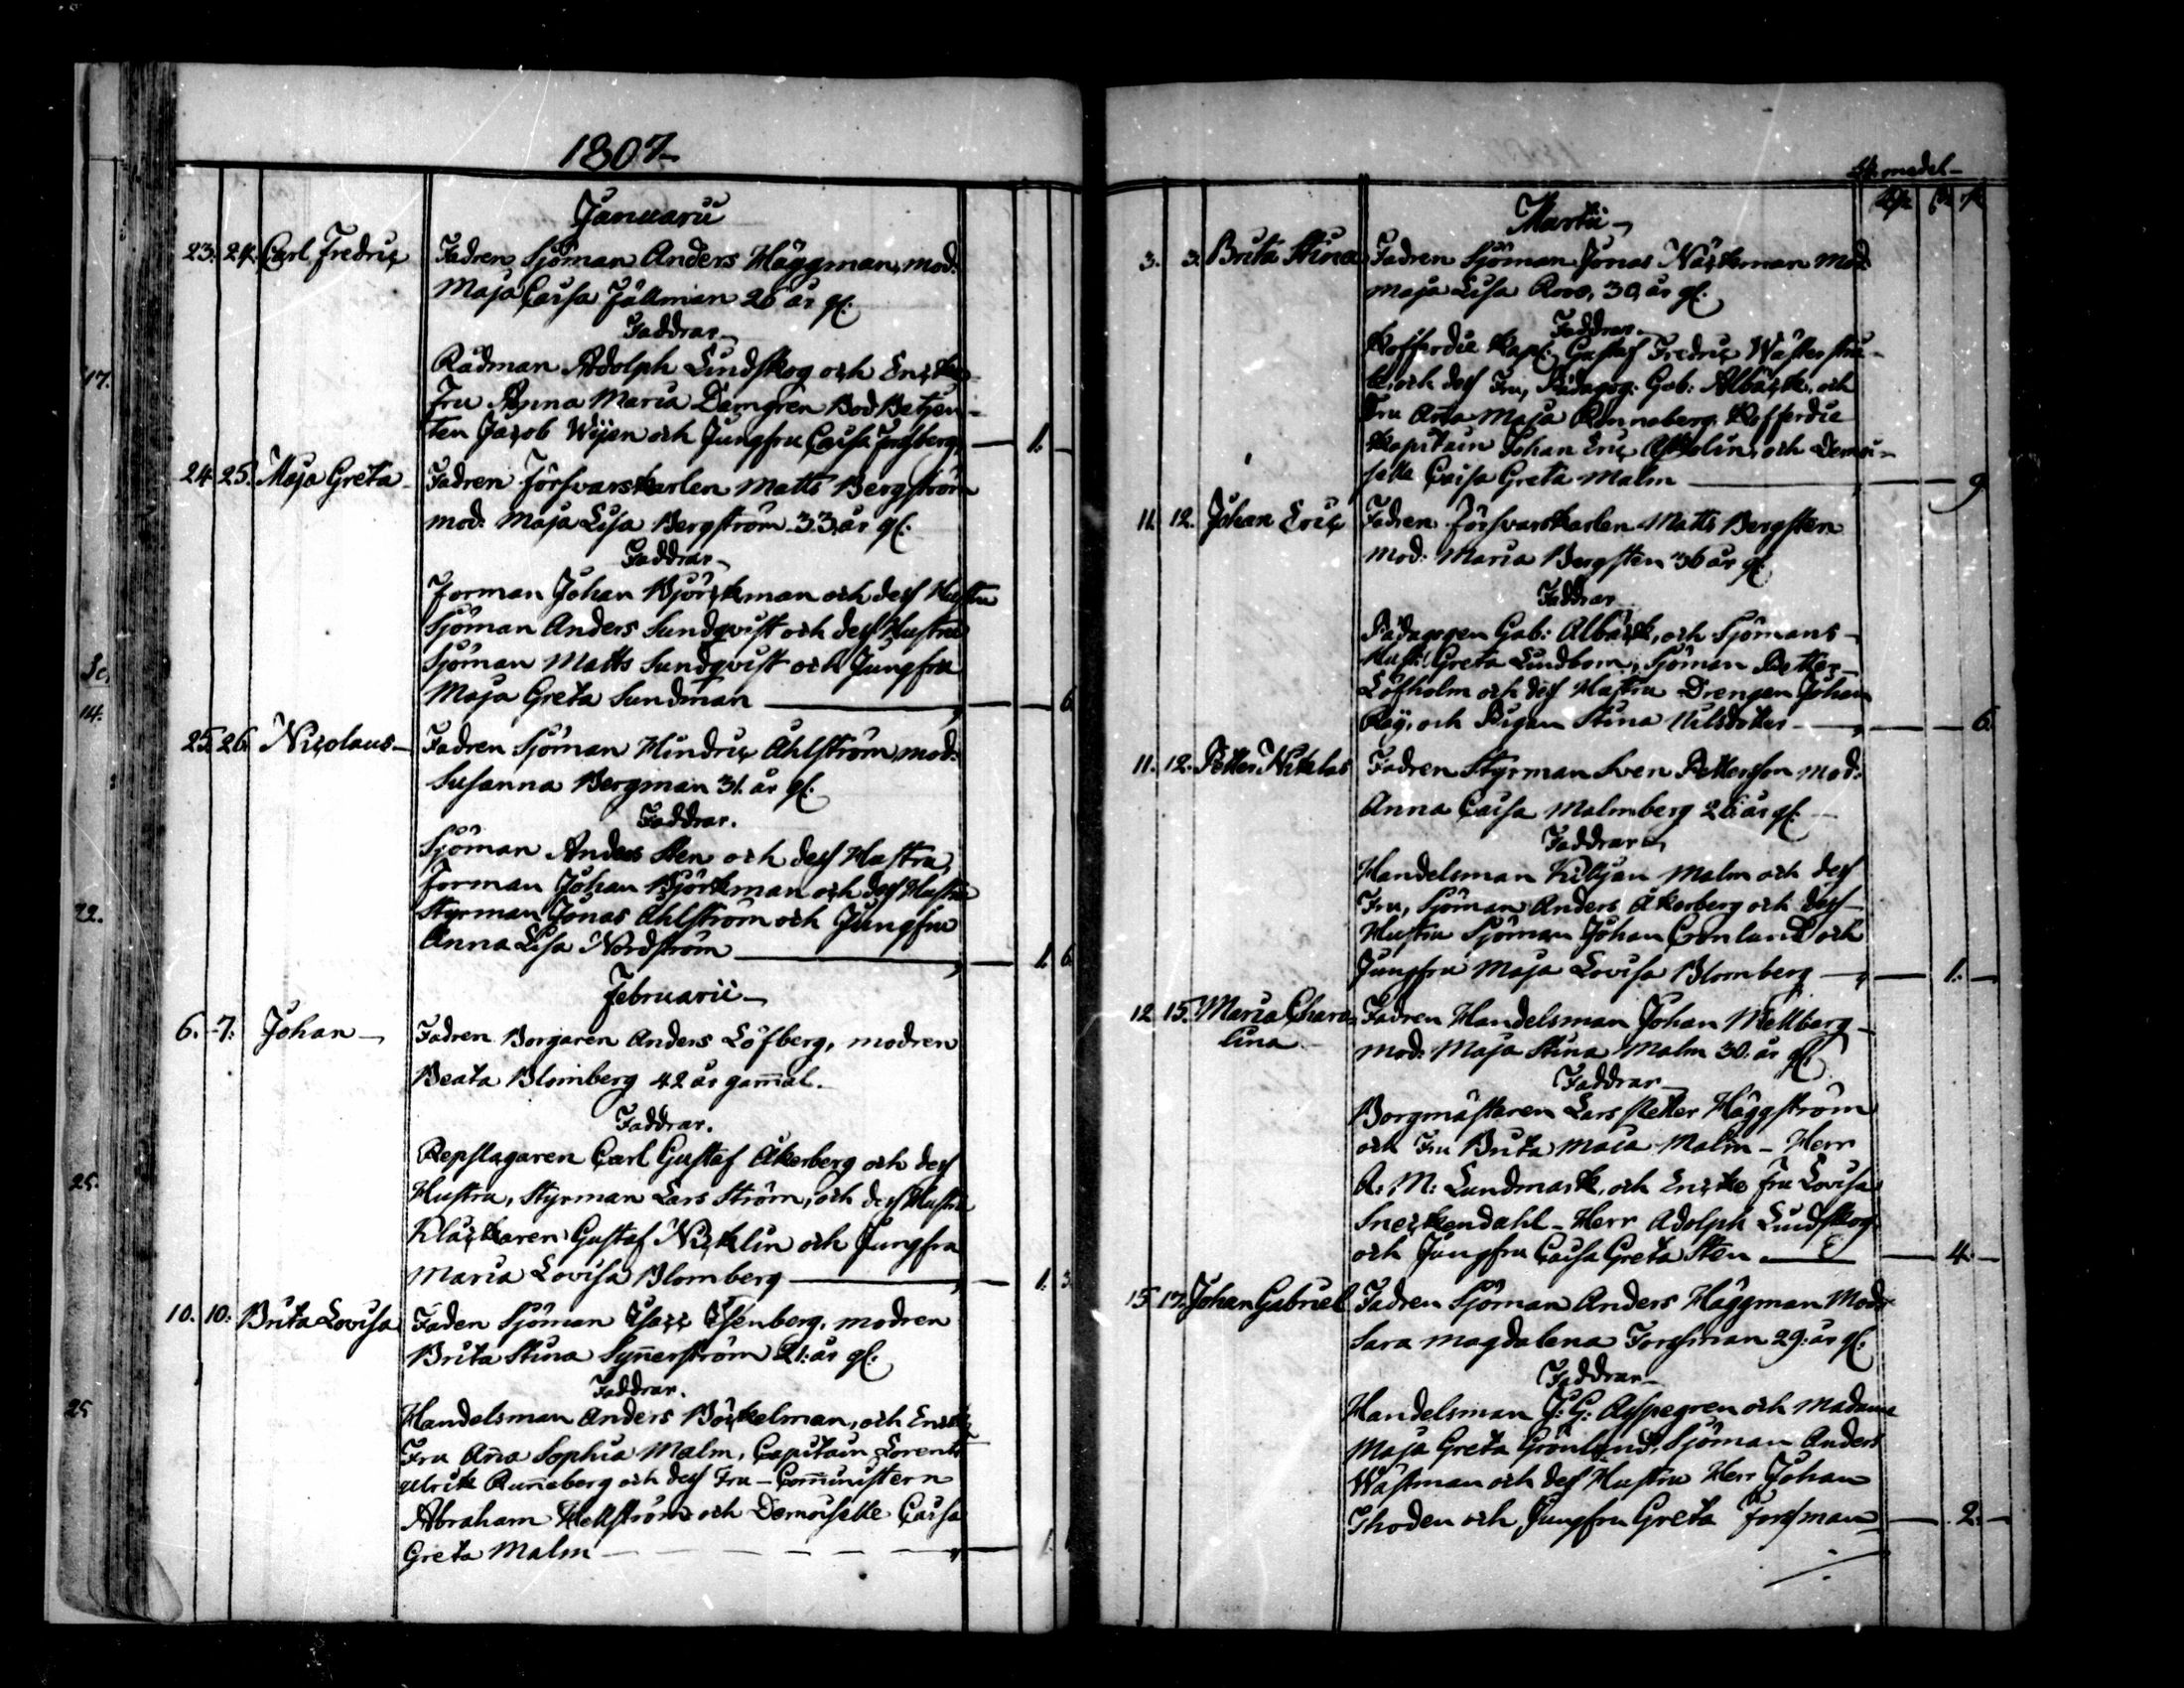 1807
Januarii
23. 24. Carl Fredric Fadren Sjöman Anders Häggman, mod:
Maja Caisa Fällman 26 år gl:
Faddrar
Rådman Adolph Lindskog och Encke
Fru Anna Maria Damgren Bod Betjen-
ten Jacob Wijen och Jungfru Caisa Forsberg 1.
24 25. Maja Greta Fadren Försvarskarlen Matts Bergström
mod: Maja Lisa Bergström 33 år gl:
Faddrar
Forman Johan Björckman och dess Hustru
Sjöman Anders Sundqvist och dess Hustru
Sjöman Matts Sundqvist och Jungfru
Maja Greta Sundman 6.
25. 26. Nicolaus Fadren Sjöman Hindric Åhlström, mod:
Susanna Bergman 31. år gl:
Faddrar.
Sjöman Anders Sten och dess Hustru,
Forman Johan Björkman och dess Hustru
Styrman Jonas Ahlström och Jungfru
Anna Lisa Nordström 1. 6.
Februarii
6. 7. Johan Fadren Borgaren Anders Löfberg, modren
Beata Blomberg 42 år gam̄al.
Faddrar.
Repslagaren Carl Gustaf Åkerberg och dess
Hustru, Styrman Lars Ström, och dess Hustru
Klåckaren Gustaf Nicklin och Jungfru
Maria Lovisa Blomberg 1. 3
10. 10. Brita Lovisa Faden Sjöman Isacc Isenberg, modren
Brita Stina Syn̄erström 21: år gl:
Faddrar.
Handelsman Anders Böckelman, och Encke
Fru An̄a Sophia Malm, Capitain Lorents
Ulrik Run̄eberg och dess Fru - Com̄inistern
Abraham Hellström och Demoiselle Caisa
Greta Malm 1.
17.
30.
14.
22.
25.
25
Martii
3. 3. Brita Stina Fadren Sjöman Jonas Näckman mod:
Maja Lisa Roos, 30, år gl:
Faddrar
Kofferdie Kapt: Gustaf Fredric Wästerstrå-
le, och dess Fru, Pädagog: Gab: Albäck, och
Fru An̄a Maja Run̄eberg, Kofferdie
Kapitain Johan Eric Asholin, och Demoi-
selle Caisa Greta Malm 9
11. 12. Johan Eric Fadren Försvarskarlen Matts Bergsten
mod: Maria Bergsten 36 år gl:
Faddrar
Pädagogen Gab: Albäck, och Sjömans
Hust: Greta Lindbom, Sjöman Petter
Löfholm och dess Hustru Drengen Johan
och Pigan Stina Nilsdotter 6.
11. 12. Petter Niklas Fadren Styrman Sven Pettersson mod:
Anna Caisa Malmberg 26: år gl:
Faddrar
Handelsman Kiljan Malm och dess
Fru, Sjöman Anders Åkerberg och dess
Hustru Sjöman Johan Grönlund och
Jungfru Maja Lovisa Blomberg 1.
12 15. Maria Charo- Fadren Handelsman Johan Mellberg
lina mod: Maja Stina Malm 30. år gl:
Faddrar
Borgmästaren Lars Petter Häggström
och Fru Brita Maja Malm - Herr
A: M: Lundmark, och Encke Fru Lovisa
Sneckendahl - Herr Adolph Lindskog
och Jungfru Caisa Greta Sten 4.
15 17. Johan Gabriel Fadren Sjöman Anders Häggman Mod:
Sara Magdalena Forssman 29: år gl:
Faddrar
Handelsman J: G: Aspegren och Madame
Maja Greta Grönlund, Sjöman Anders
Wästman och dess Hustru Herr Johan
Thoden och Jungfru Greta Forssman 2.